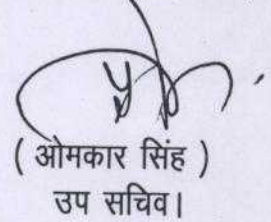 ( ओमकार सिंह )
उप सचिव।